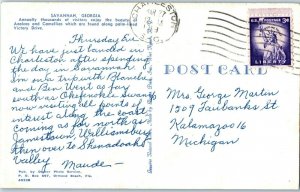 SAVANNAH, GEORGIA
Annually thousands of visitors enjoy the beauty of
Azaleas and Camellias which are found along palm-lined
Victory Drive.
Thursday Eve
We have just landed in
Charleston after spending
the day in Savannah.
on our trip with Blanche
and Ben. Went as far
south as Okefenokee Swamp
now visiting all points of
interest along the coast
Coming as far north as
Jamestown, Williamsburg
then over to Shenadoahl
Valley
Maude-
P. O. Box 897, Ormond Beach, Fla.
CHARLESTON
3¢
LIBERTY
POST CARD
Mrs. George Martin
1509 Fairbanks St
Kalamazoo 16
Michigan